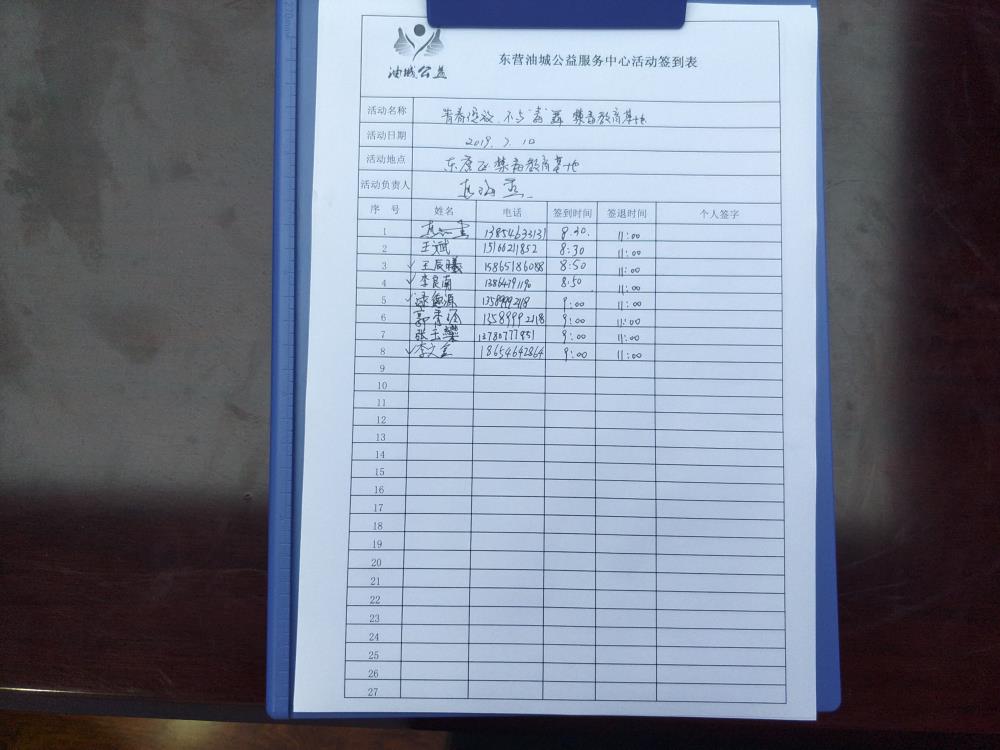 油城公益
东营油城公益服务中心活动签到表
活动名称 青春绽放 不与"毒"舞 禁毒教育基地
活动日期 2019.7.10
活动地点 东营区禁毒教育基地
活动负责人
序号 姓名 电话 签到时间 签退时间 个人签字
1 13854633131 8:30 11:00
2 王斌 15166211852 8:30 11:00
✓ 3 王辰曦 15865186088 8:50 11:00
✓ 4 李良南 13864791190 8:50 11:00
✓ 5 13589992118 9:00 11:00
6 13589992118 9:00 11:00
7 张玉燊 13780777951 9:00 11:00
✓ 8 李文金 18654642864 9:00 11:00
9
10
11
12
13
14
15
16
17
18
19
20
21
22
23
24
25
26
27